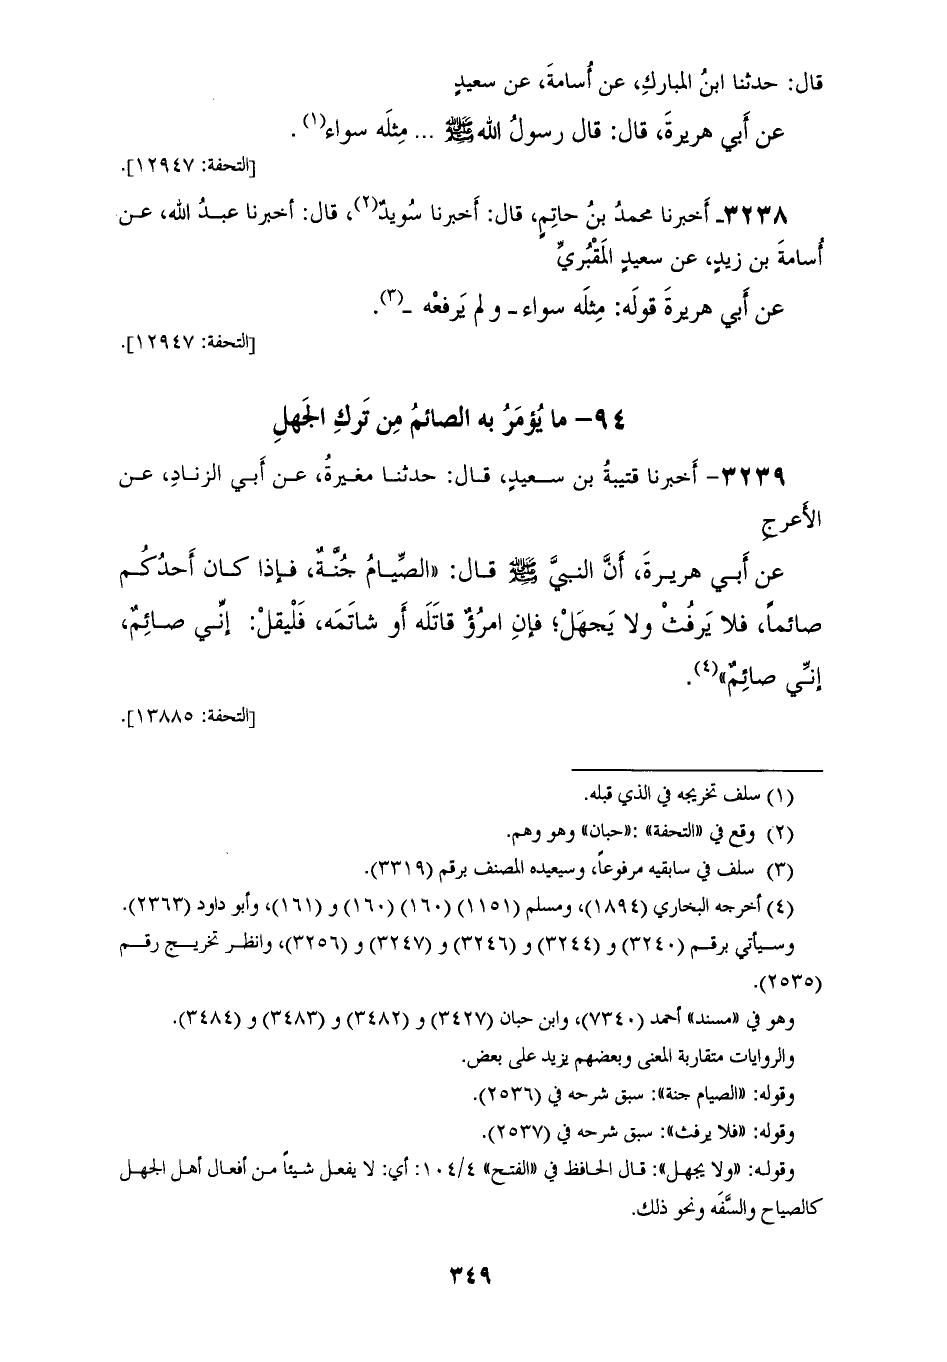 قال: حدثنا ابنُ المباركِ، عن أُسامةَ، عن سعيدٍ
عن أَبي هريرةَ، قال: قال رسولُ الله ﷺ ... مِثلَه سواء(١) .
[التحفة: ١٢٩٤٧].
٣٢٣٨ـ أَخبرنا محمدُ بنُ حاتمٍ، قال: أَخبرنا سُويدٌ(٢)، قال: أخبرنا عبدُ الله، عن
أُسامةَ بن زيدٍ، عن سعيدٍ المَقْبُريِّ
عن أَبي هريرةَ قولَه: مِثلَه سواء ـ و لم يَرفعْه ـ(٣).
[التحفة: ١٢٩٤٧].
٩٤- ما يُؤمَرُ به الصائمُ مِن تَركِ الجَهلِ
٣٢٣٩- أَخبرنا قتيبةُ بن سـعيدٍ، قـال: حدثنـا مغيرةُ، عـن أَبـي الزنـادِ، عـن
الأَعرجِ
عن أَبـي هريـرةَ، أَنَّ النبيَّ ﷺ قـال: «الصِّيـامُ جُنَّـةٌ، فـإذا كـان أَحدُكُـم
صائماً، فلا يَرفُثْ ولا يَجهَلْ؛ فإنِ امرُؤٌ قاتَلَه أَو شاتَمَه، فَلْيقلْ: إنِّـي صـائِمٌ،
إنِّي صائِمٌ»(٤).
[التحفة: ١٣٨٨٥].
(١) سلف تخريجه في الذي قبله.
(٢) وقع في «التحفة» :«حبان» وهو وهم.
(٣) سلف في سابقيه مرفوعاً، وسيعيده المصنف برقم (٣٣١٩).
(٤) أخرجه البخاري (١٨٩٤)، ومسلم (١١٥١) (١٦٠) و (١٦١)، وأبو داود (٢٣٦٣).
وسـيأتي برقـم (٣٢٤٠) و (٣٢٤٤) و (٣٢٤٦) و (٣٢٤٧) و (٣٢٥٦)، وانظـر تخريـج رقـم
(٢٥٣٥).
وهو في «مسند» أحمد (٧٣٤٠)، وابن حبان (٣٤٢٧) و (٣٤٨٢) و (٣٤٨٣) و (٣٤٨٤).
والروايات متقاربة المعنى وبعضهم يزيد على بعض.
وقوله: «الصيام جنة»: سبق شرحه في (٢٥٣٦).
وقوله: «فلا يرفث»: سبق شرحه في (٢٥٣٧).
وقولـه: «ولا يجهـل»: قـال الحـافظ في «الفتـح» ١٠٤/٤: أي: لا يفعـل شـيئاً مـن أفعـال أهـل الجهـل
كالصياح والسَّفَه ونحو ذلك.
٣٤٩